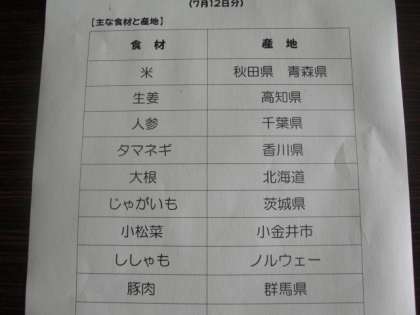 (7月12日分)
【主な食材と産地】
食 材 産 地
米 秋田県 青森県
生姜 高知県
人参 千葉県
タマネギ 香川県
大根 北海道
じゃがいも 茨城県
小松菜 小金井市
ししゃも ノルウェー
豚肉 群馬県